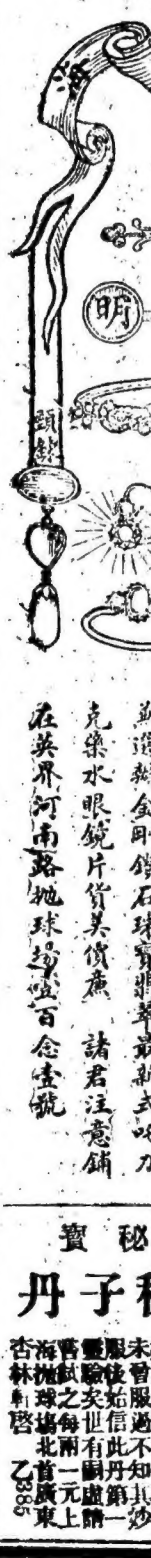 海
明
選辦金剛鑽石珠寶翡翠最新式吡刀
克藥水眼鏡片貨美價廉 諸君注意鋪
在英界河南路抛球塲壹百念壹號
秘寶
子丹
未曾服過不知其妙
服後始信此丹第一
靈驗矣世有嗣慮請
嘗試之每兩一元上
海抛球塲北首廣東
杏林軒啓 乙385